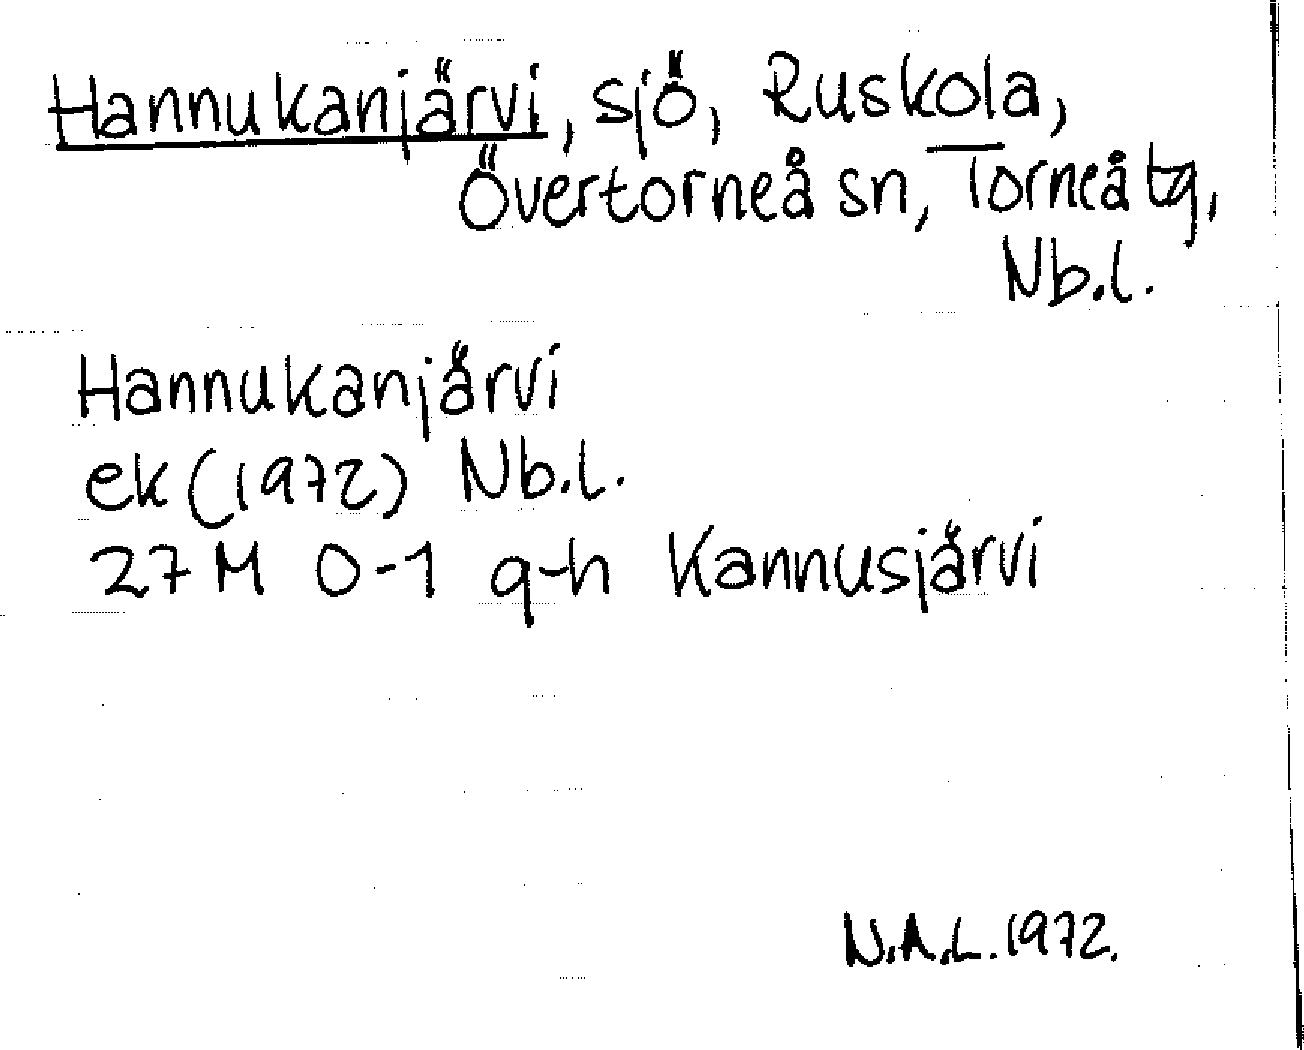 Hannukanjärvi, sjö, Ruskola,
Övertorneå sn, Torneå tg,
Nb.l.
Hannukanjärvi
ek (1972) Nb.l.
27 M 0-1 g-h Kannusjärvi
N.A.L. 1972.